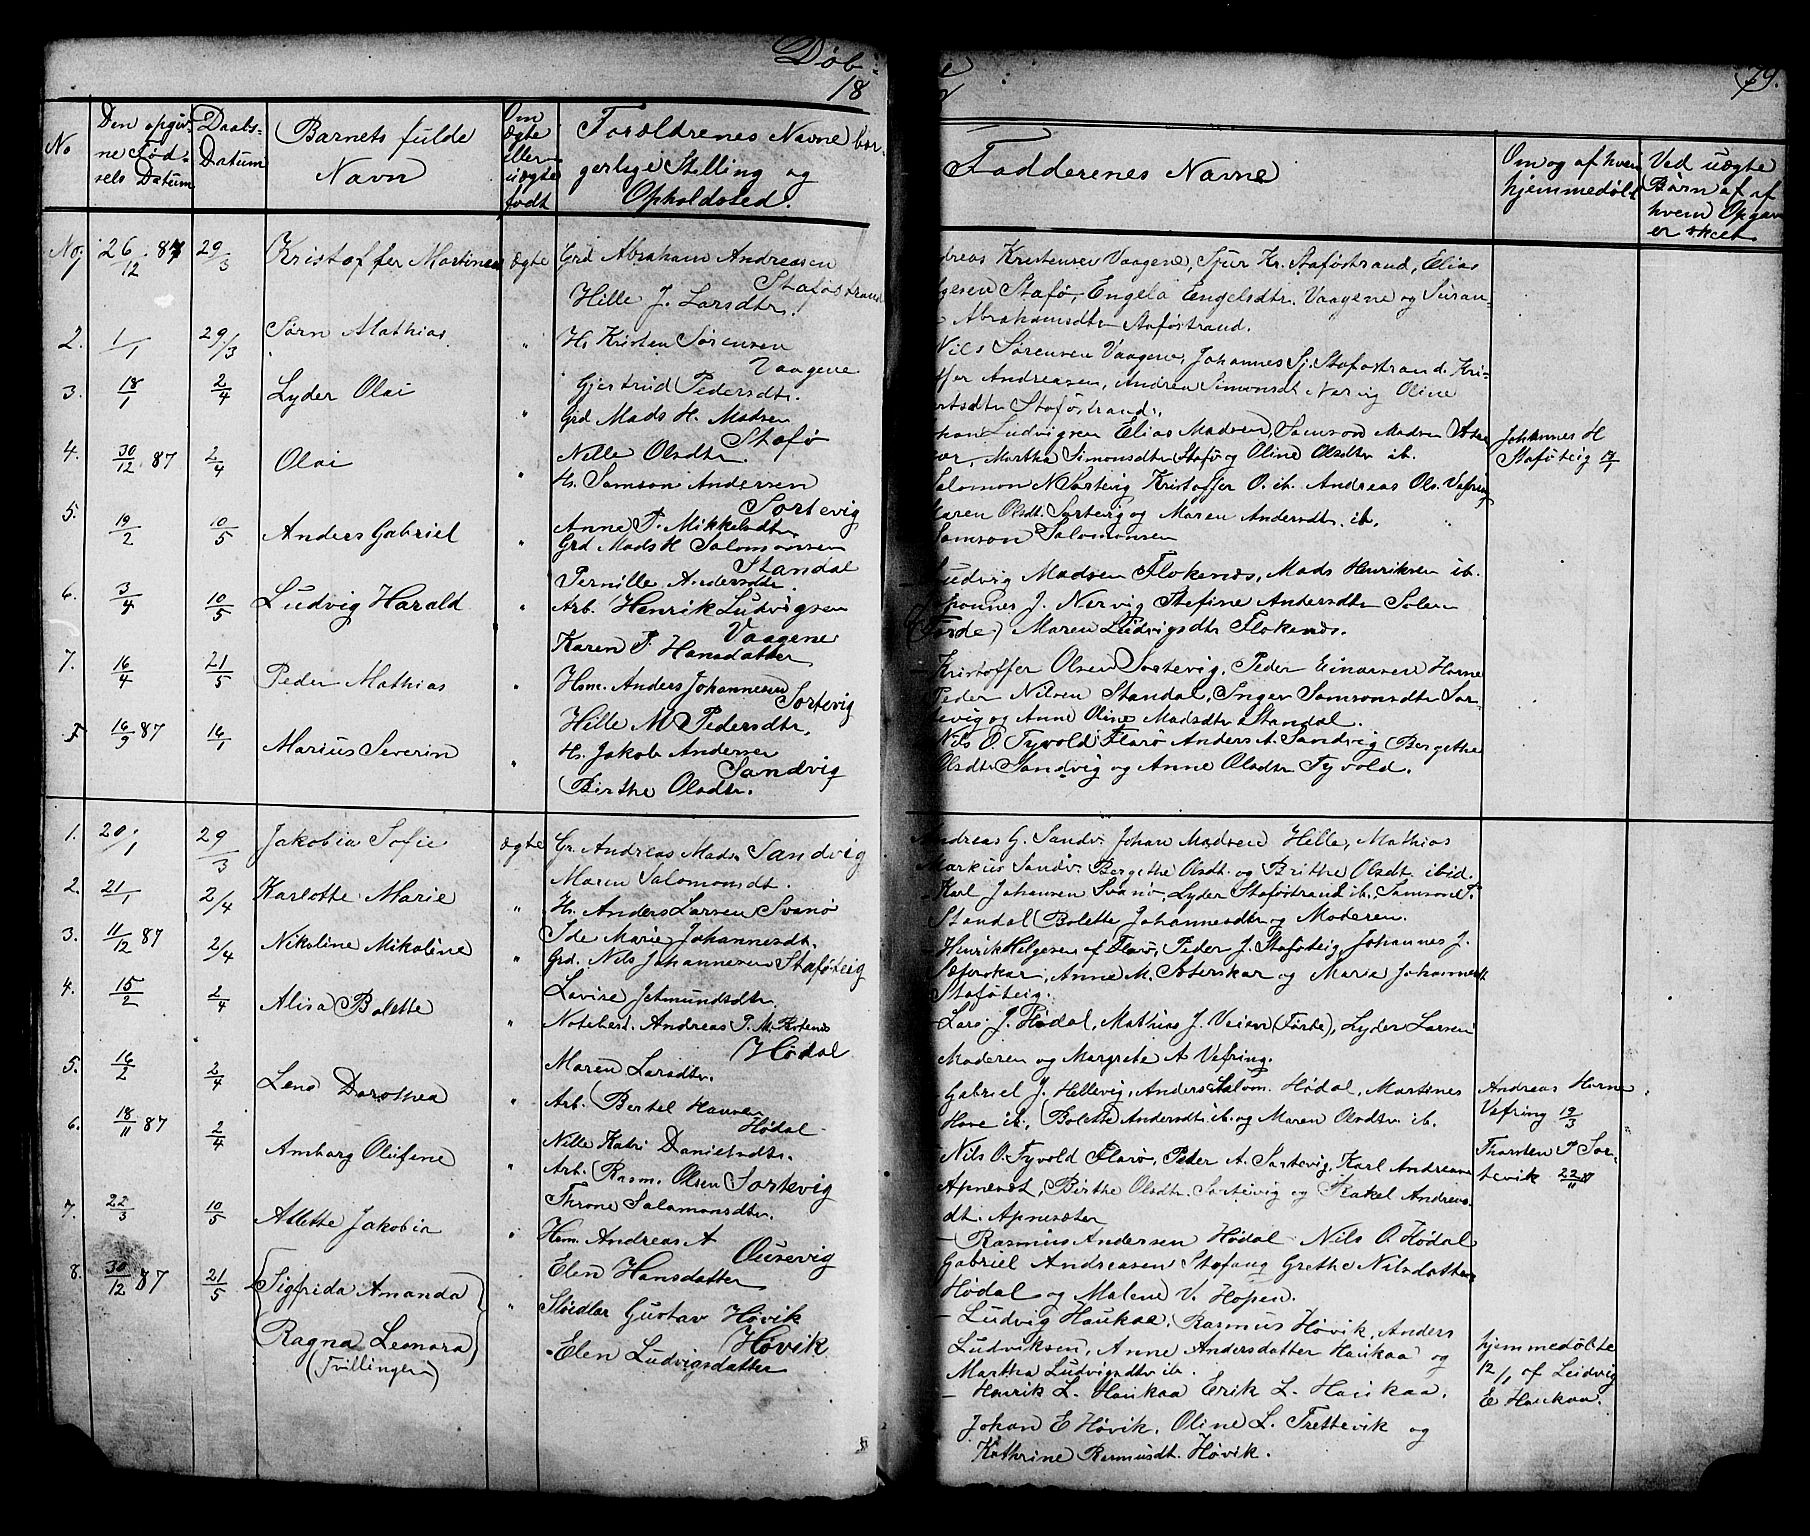 Døb-
18
79.
No
Den opgiv-
ne Fød-
sels Datum
Daabs-
Datum
Barnets fulde
Navn
Om
ægte
eller
uægte
født
Forældrenes Navne bor-
gerlige Stilling og
Opholdssted.
Faddernes Navne
Om og af hvem
hjemmedøbt
Ved uægte
Børn af af
hvem Opgave
er skeet
1 26/12 87 29/3 Kristoffer Martines ægte Grd Abraham Andreasen
Staføstrand
Hille J. Larsdtr.
2. 1/1 29/3 Sørn Mathias " Hs. Kristen Sørensen
Vaagene
Gjertrud Pedersdtr.
3. 18/1 2/4 Lyder Olai " Grd Mads H. Madsen
Stafø
Nille Olsdtr.
4. 30/12 87 2/4 Olai " Hs. Samson Andersen
Sortevig
Anne P. Mikkelsdtr.
5. 19/2 10/5 Anders Gabriel " Grd Mads H Salomonsen
Standal
Pernille Andersdtr.
6. 3/4 10/5 Ludvig Harald " Arb. Henrik Ludvigsen
Vaagene
Karen P. Hansdatter
7. 16/4 21/5 Peder Mathias " Hsm. Anders Johannesen
Sortevig
Hille M Pedersdtr.
16/9 87 16/1 Marius Severin " Hs. Jakob Andersen
Sandvig
Birthe Olsdtr.
1. 20/1 29/3 Jakobia Sofie ægte Gr. Andreas Mads. Sandvig
Maren Salomonsdt.
2. 21/1 2/4 Karlotte Marie " Hs. Anders Larsen Svanø
Ide Marie Johannesdt.
3. 11/12 87 2/4 Nikoline Mikaline " Grd. Nils Johannesen Staføteig
Lovise Jetmundsdtr.
4. 15/2 2/4 Alisa Bolette " Notebest. Andreas P.
Hødal
Maren Larsdtr.
5. 16/2 2/4 Lena Dorothea " Arb. Bertel Hansen
Hødal
Nille Katri Danielsdtr.
6. 18/11 87 2/4 Amborg Olufine " Arb. Rasm. Olsen Sortevig
Throne Salamonsdtr.
7. 22/3 10/5 Atlette Jakobia " Hsm. Andreas A
Ousevig
Elen Hansdatter
8. 30/12 87 21/5 Sigfrida Amanda
Ragna Leonora
(Tvillinger)
" Gustav Høvik
Høvik
Elen Ludvigsdatter
Kristensen Vaagene, Sjur Kr. Staføstrand, Elias
Stafø, Engela Engelsdtr. Vaagene og Suran-
Abrahamsdtr Staføstrand.
Nils Sørensen Vaagene, Johannes Sj. Stafostrand. Kri-
Andreasen, Andrea Simonsdt Nærvig Oline
Staføstrand.
Ludvigsen Elias Madsen, Samson Madsen
Martha Simonsdtr Stafø og Oline Olsdtr ib.
Johannes H
Staføteig
Salomon N Sortevig Kristoffer O. ib. Andreas Ols. Vefring
Maren Olsdt. Sortevig og Maren Andersdtr. ib.
Samson Salomonsen
Ludvig Madsen Flokenæs, Mads Henriksen ib.
Johannes J. Nervig Stefine Andersdtr Solem
(Førde) Maren Ludvigsdtr Flokenæs.
Kristoffer Olsen Sortevig, Peder Einarsen Horne
Peder Nilsen Standal, Inger Samsonsdtr Sor-
tevig og Anne Oline Madsdtr Standal.
Nils O. Tyvold Florø Anders A. Sandvig Bergethe
Olsdtr Sandvig og Anne Olsdtr Tyvold.
Andreas G. Sandv. Johan Madsen Hille, Mathias
Markus Sandv. Bergethe Olsdt. og Brithe Olsdt. ibid.
Karl Johansen Svanø, Lyder Stafostrand ib, Samson P.
Standal Bolette Johannesdtr og Moderen.
Henrik Helgesen af Florø, Peder J. Staføteig, Johannes J.
Anne M. og Maria Johannes
Staføteig.
Lars J. Hødal, Mathias J. Veien (Førde), Lyder Larsen
Moderen og Margrete A Vefring.
Gabriel J. Hellevig, Anders Salom. Hødal, Martines
Hove ib, Bolette Andersdt. ib. og Maren Olsdtr ib.
Andreas Horne
Vefring 19/3
Nils O. Tyvold Florø, Peder A. Sortevig, Karl Andreas
Birthe Olsdtr. Sortevig og Rakel Andreas
dt. Apneseter
Thorsten P Sor-
tevik 22/11
Rasmus Andersen Hødal Nils O. Hødal
Gabriel Andreasen Stafang Grethe Nilsdatter
Hødal og Malene V. Hopen.
Ludvig Haukaa, Rasmus Høvik, Anders
Ludviksen, Anne Andersdatter Haukaa og
Martha Ludvigsdtr ib.
Henrik L. Haukaa Erik L. Haukaa.
Johan E Høvik, Oline L. Trettevik og
Kathrine Rasmusdt. Høvik.
hjemmedøbte
12/1 af Ludvig
E Haukaa.